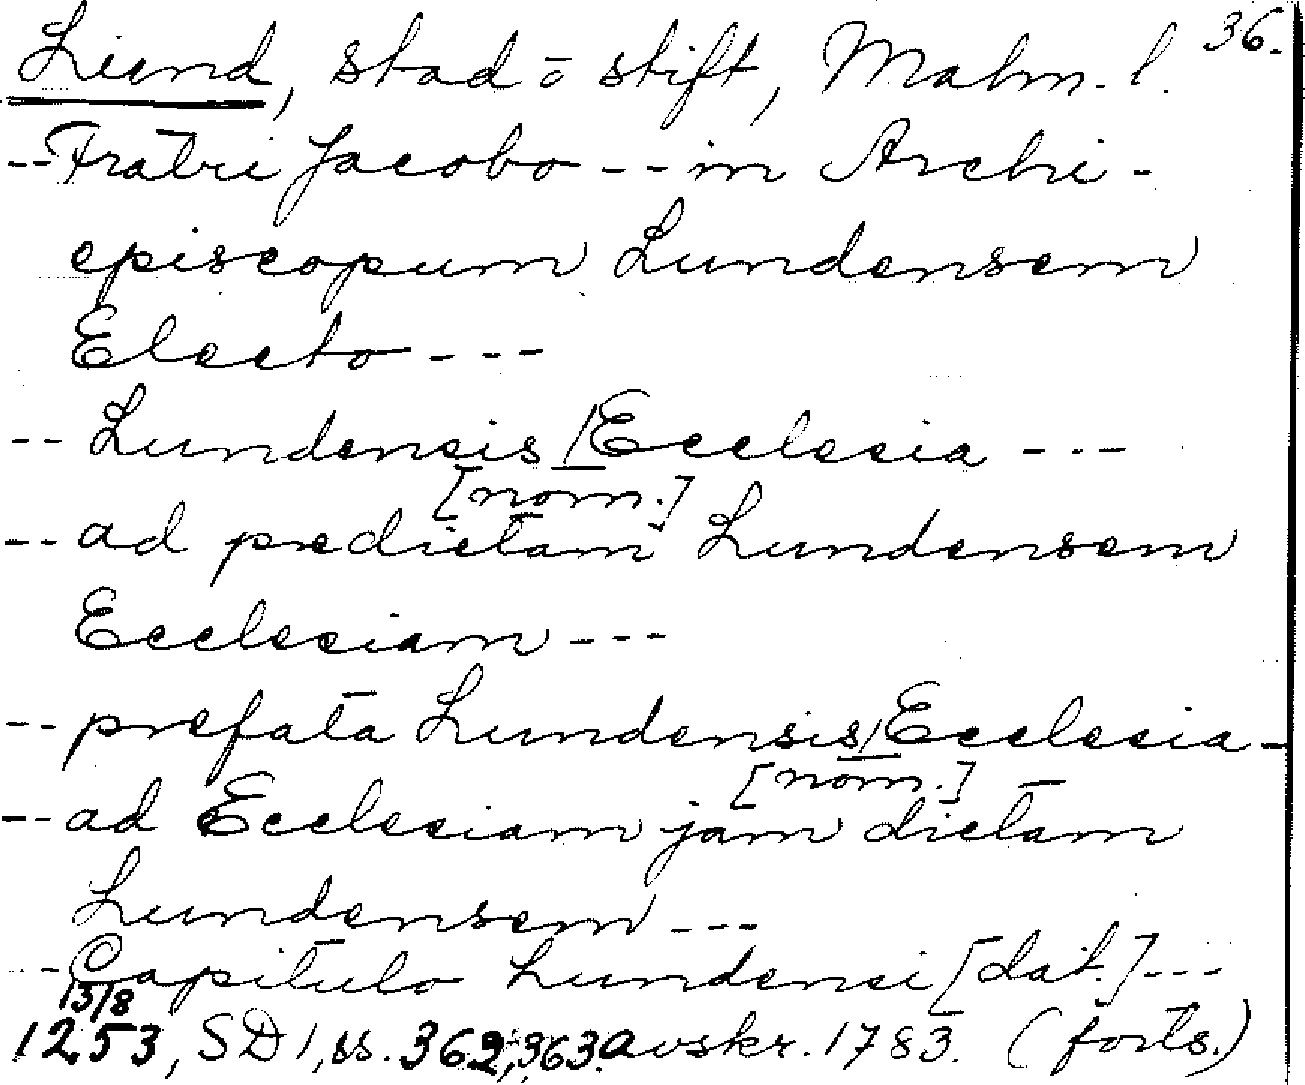 36.
Lund, stad o stift, Malm. l.
-- Fratri Jacobo -- in Archi-
episcopum Lundensem
Electo ---
-- Lundensis / Ecclesia ---
[nom.]
-- ad predictam Lundensem
Ecclesiam ---
-- prefata Lundensis / Ecclesia -
[nom.]
-- ad Ecclesiam jam dictam
Lundensem ---
-- Capitulo Lundensi [dat.] ---
13/8
1253, SD 1, ss. 362, 363. avskr. 1783. (forts.)